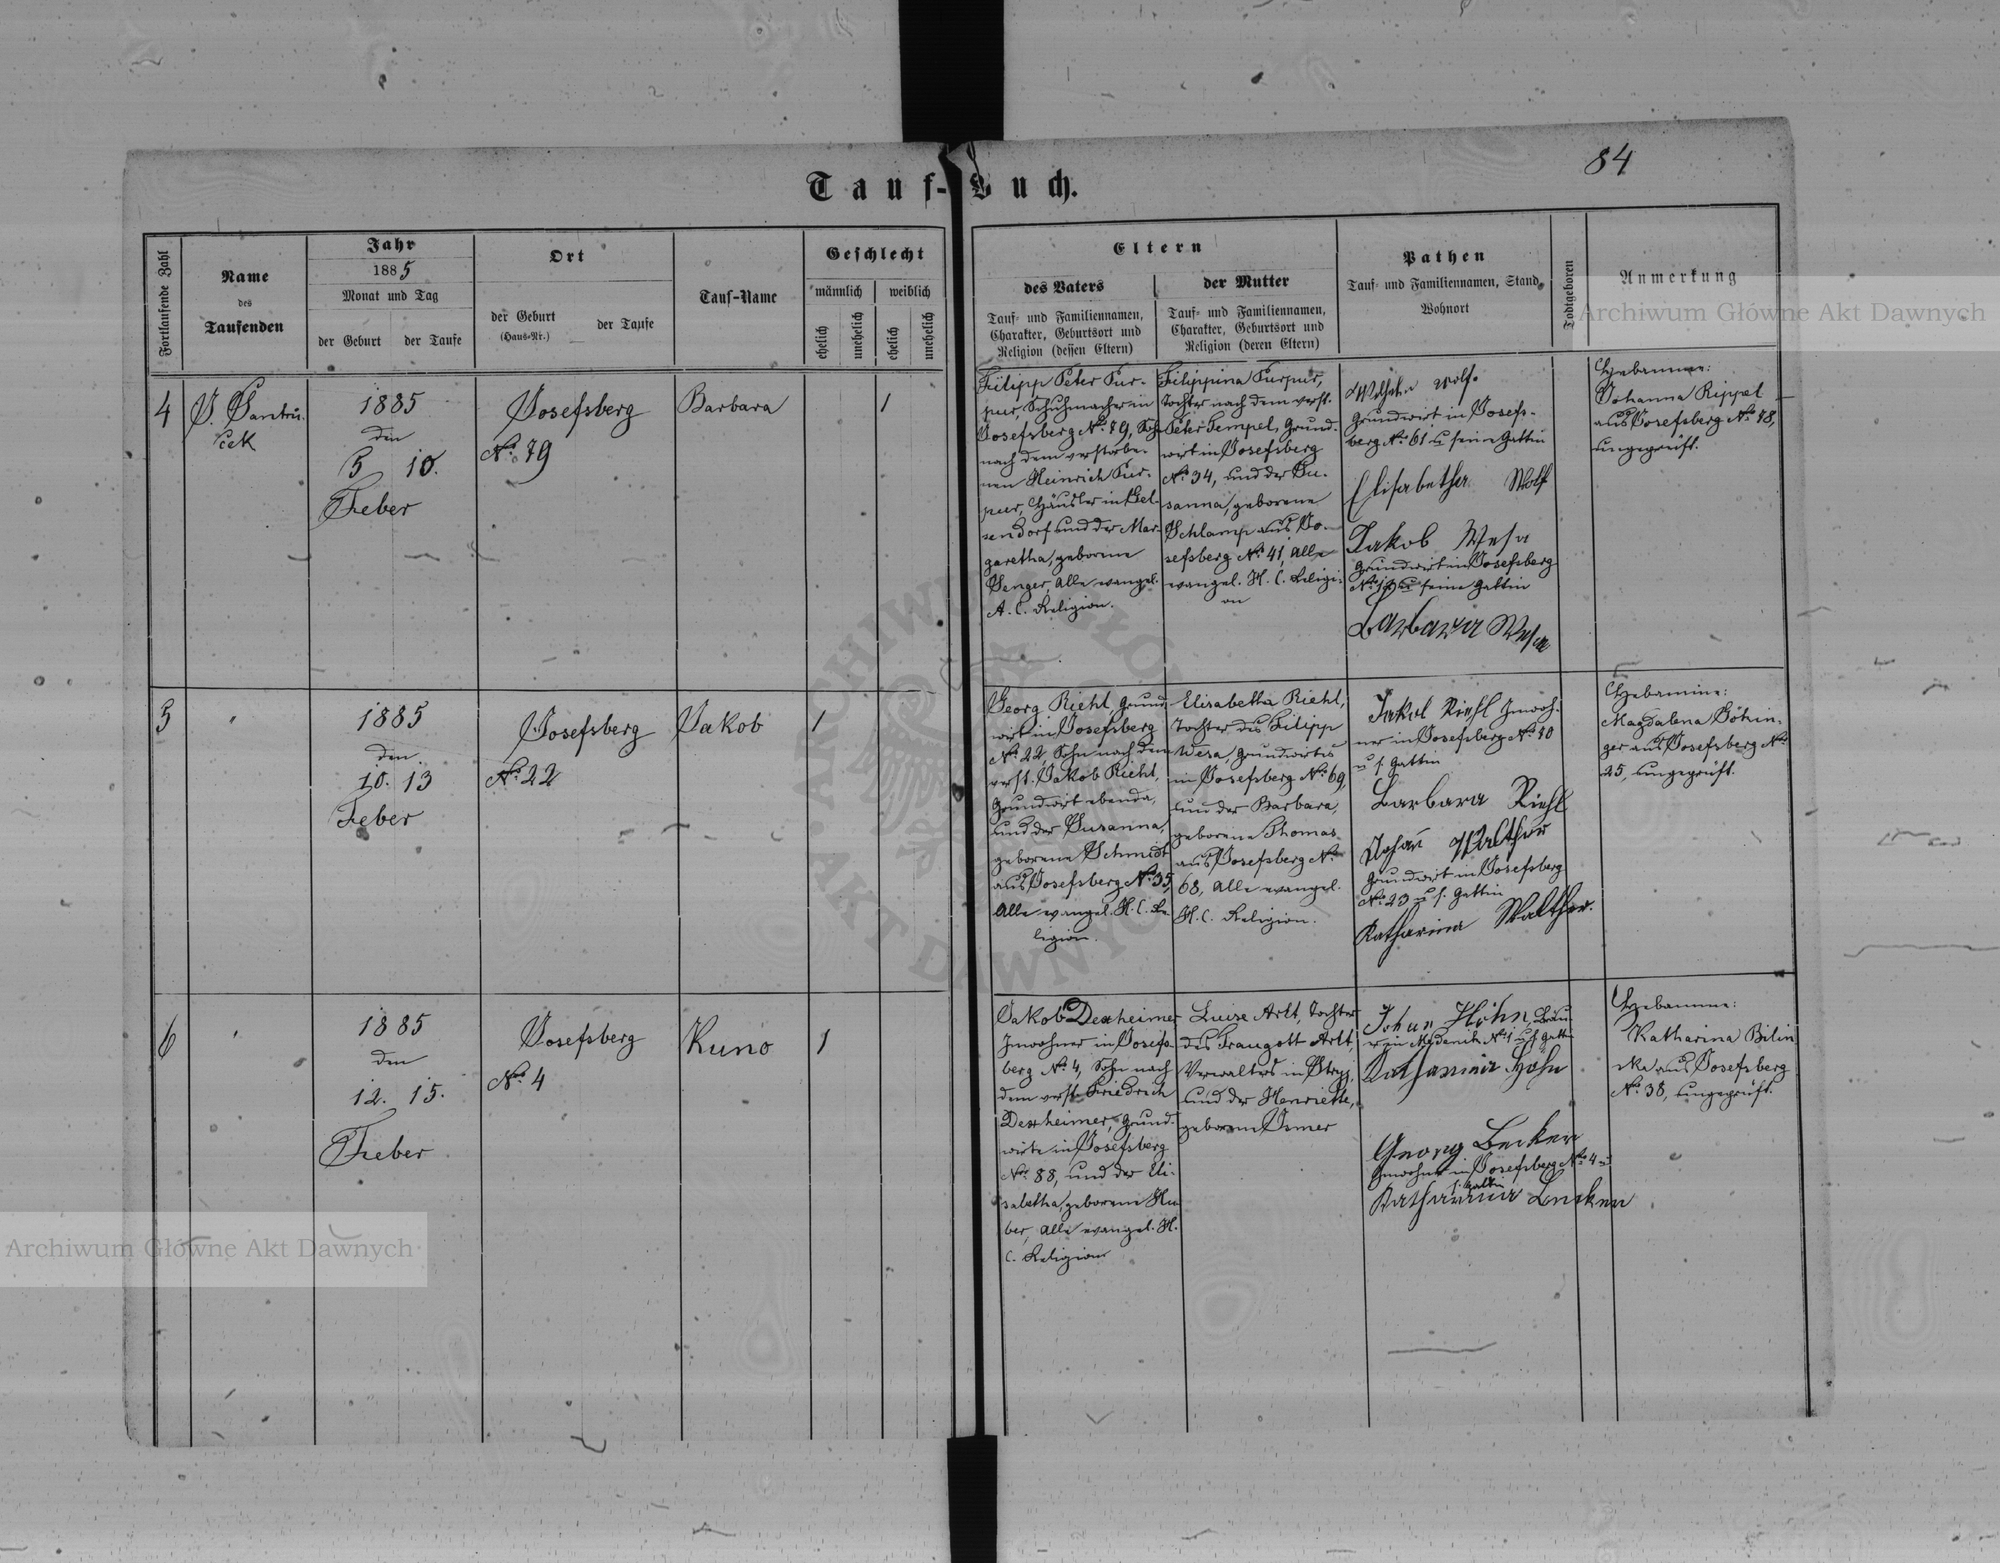 84
Tauf-Buch.
Fortlaufende Zahl
Name
des
Taufenden
Jahr
1885
Monat und Tag
der Geburt
der Taufe
Ort
der Geburt
(Haus-Nr.)
der Taufe
Tauf-Name
Geschlecht
männlich
weiblich
ehelich
unehelich
ehelich
unehelich
Eltern
des Vaters
Tauf- und Familiennamen,
Charakter, Geburtsort und
Religion (dessen Eltern)
der Mutter
Tauf- und Familiennamen,
Charakter, Geburtsort und
Religion (deren Eltern)
Pathen
Tauf- und Familiennamen, Stand,
Wohnort
Todtgeboren
Anmerkung
4
1885
den
5 10.
Feber
Josefsberg
No. 79
Barbara
1
Filipp Peter Pur-
pur, Schuhmacher in
Josefsberg No. 79, Sohn
nach dem verstorbe-
nen Heinrich Pur-
pur, Häusler in Gel-
sendorf und der Mar-
garetha, geborene
Senger, Alle evangel.
A. C. Religion.
Filippina Purpur,
Tochter nach dem verst.
Peter Tempel, Grund-
wirt in Josefsberg
No. 34, und der Su-
sanna, geborene
Schlamp aus Jo-
sefsberg No. 41, Alle
evangel. H. C. Religi-
on
Wolf
Grundwirt in Josefs-
berg No. 61 u seine Gattin
Elisabetha Wolf
Jakob Wesa
Grundwirt in Josefsberg
seine Gattin
Barbara Wesa
Hebamme:
Johanna Rippel
aus Josefsberg No. 78,
ungeprüft.
5
1885
den
10. 13
Feber
Josefsberg
No. 22
Jakob
1
Georg Riehl, Grund-
wirt in Josefsberg
No. 22, Sohn nach dem
verst. Jakob Riehl,
Grundwirt ebenda,
und der Susanna,
geborene Schmidt
aus Josefsberg No. 35,
Alle evangel. H. C. Re-
ligion.
Elisabetha Riehl,
Tochter des Filipp
Wesa, Grundwirtes
in Josefsberg No. 69,
und der Barbara,
geborene Thomas
aus Josefsberg No.
68, Alle evangel.
H. C. Religion.
Jakob Riehl Inwoh-
ner in Josefsberg
u s. Gattin
Barbara Riehl
Johan Walther
Grundwirt in Josefsberg
No. 23 u s. Gattin
Katharina Walther.
Hebamme:
Magdalena Höhin-
ger aus Josefsberg No.
25, ungeprüft.
6
1885
den
12. 15.
Feber
Josefsberg
No. 4
Kuno
1
Jakob Dexheimer
Inwohner in Josefs-
berg No. 4, Sohn nach
dem verst. Friedrich
Dexheimer, Grund-
wirts in Josefsberg
No. 88, und der Eli-
sabetha, geborene Hu-
ber, Alle evangel. H.
C. Religion
Luise Arlt, Tochter
des Traugott Arlt,
Verwalters in Stryj,
und der Henriette,
geborene Osmer
Johan Höhn
Katharina Höhn
Georg Becker
Inwohner in Josefsberg No. 4 u
s. Gattin
Katharina Becker
Hebamme:
Katharina Bilin
ska aus Josefsberg
No. 38, ungeprüft.
Archiwum Główne Akt Dawnych
Archiwum Główne Akt Dawnych